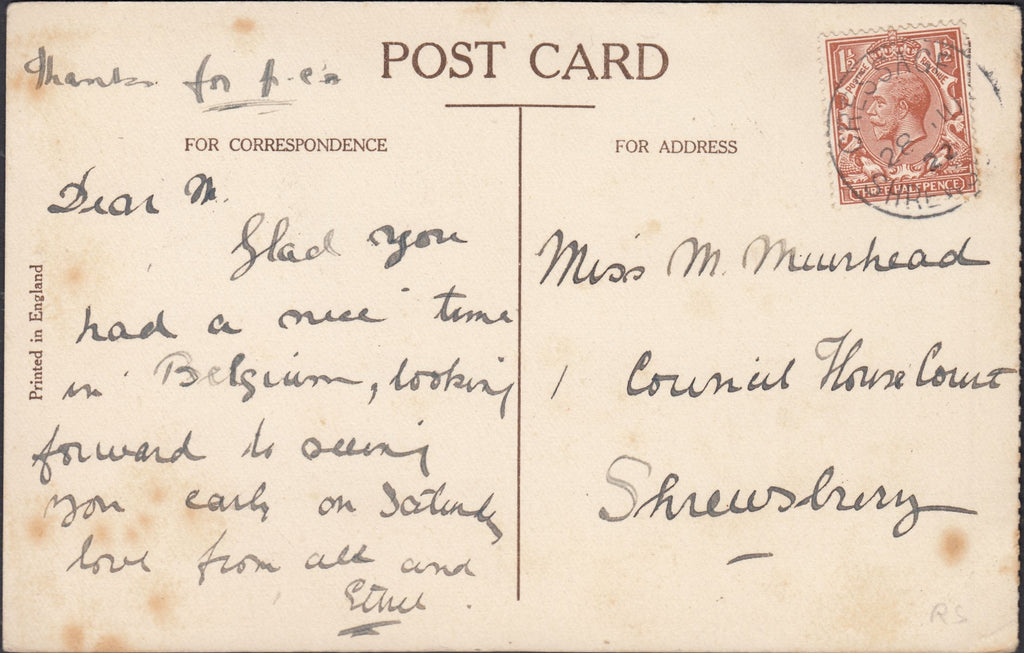 POST CARD
Thanks for p.c's
FOR CORRESPONDENCE
FOR ADDRESS
Printed in England
Dear M.
Glad you
had a nice time
in Belgium, looking
forward to seeing
you early on Saturday
love from all and
Ethel.
Miss M. Muirhead
1 Council House Court
Shrewsbury
1½ 1½
POSTAGE REVENUE
THREE HALFPENCE
CRESSAGE
28 JL
27
SHREWS
RS